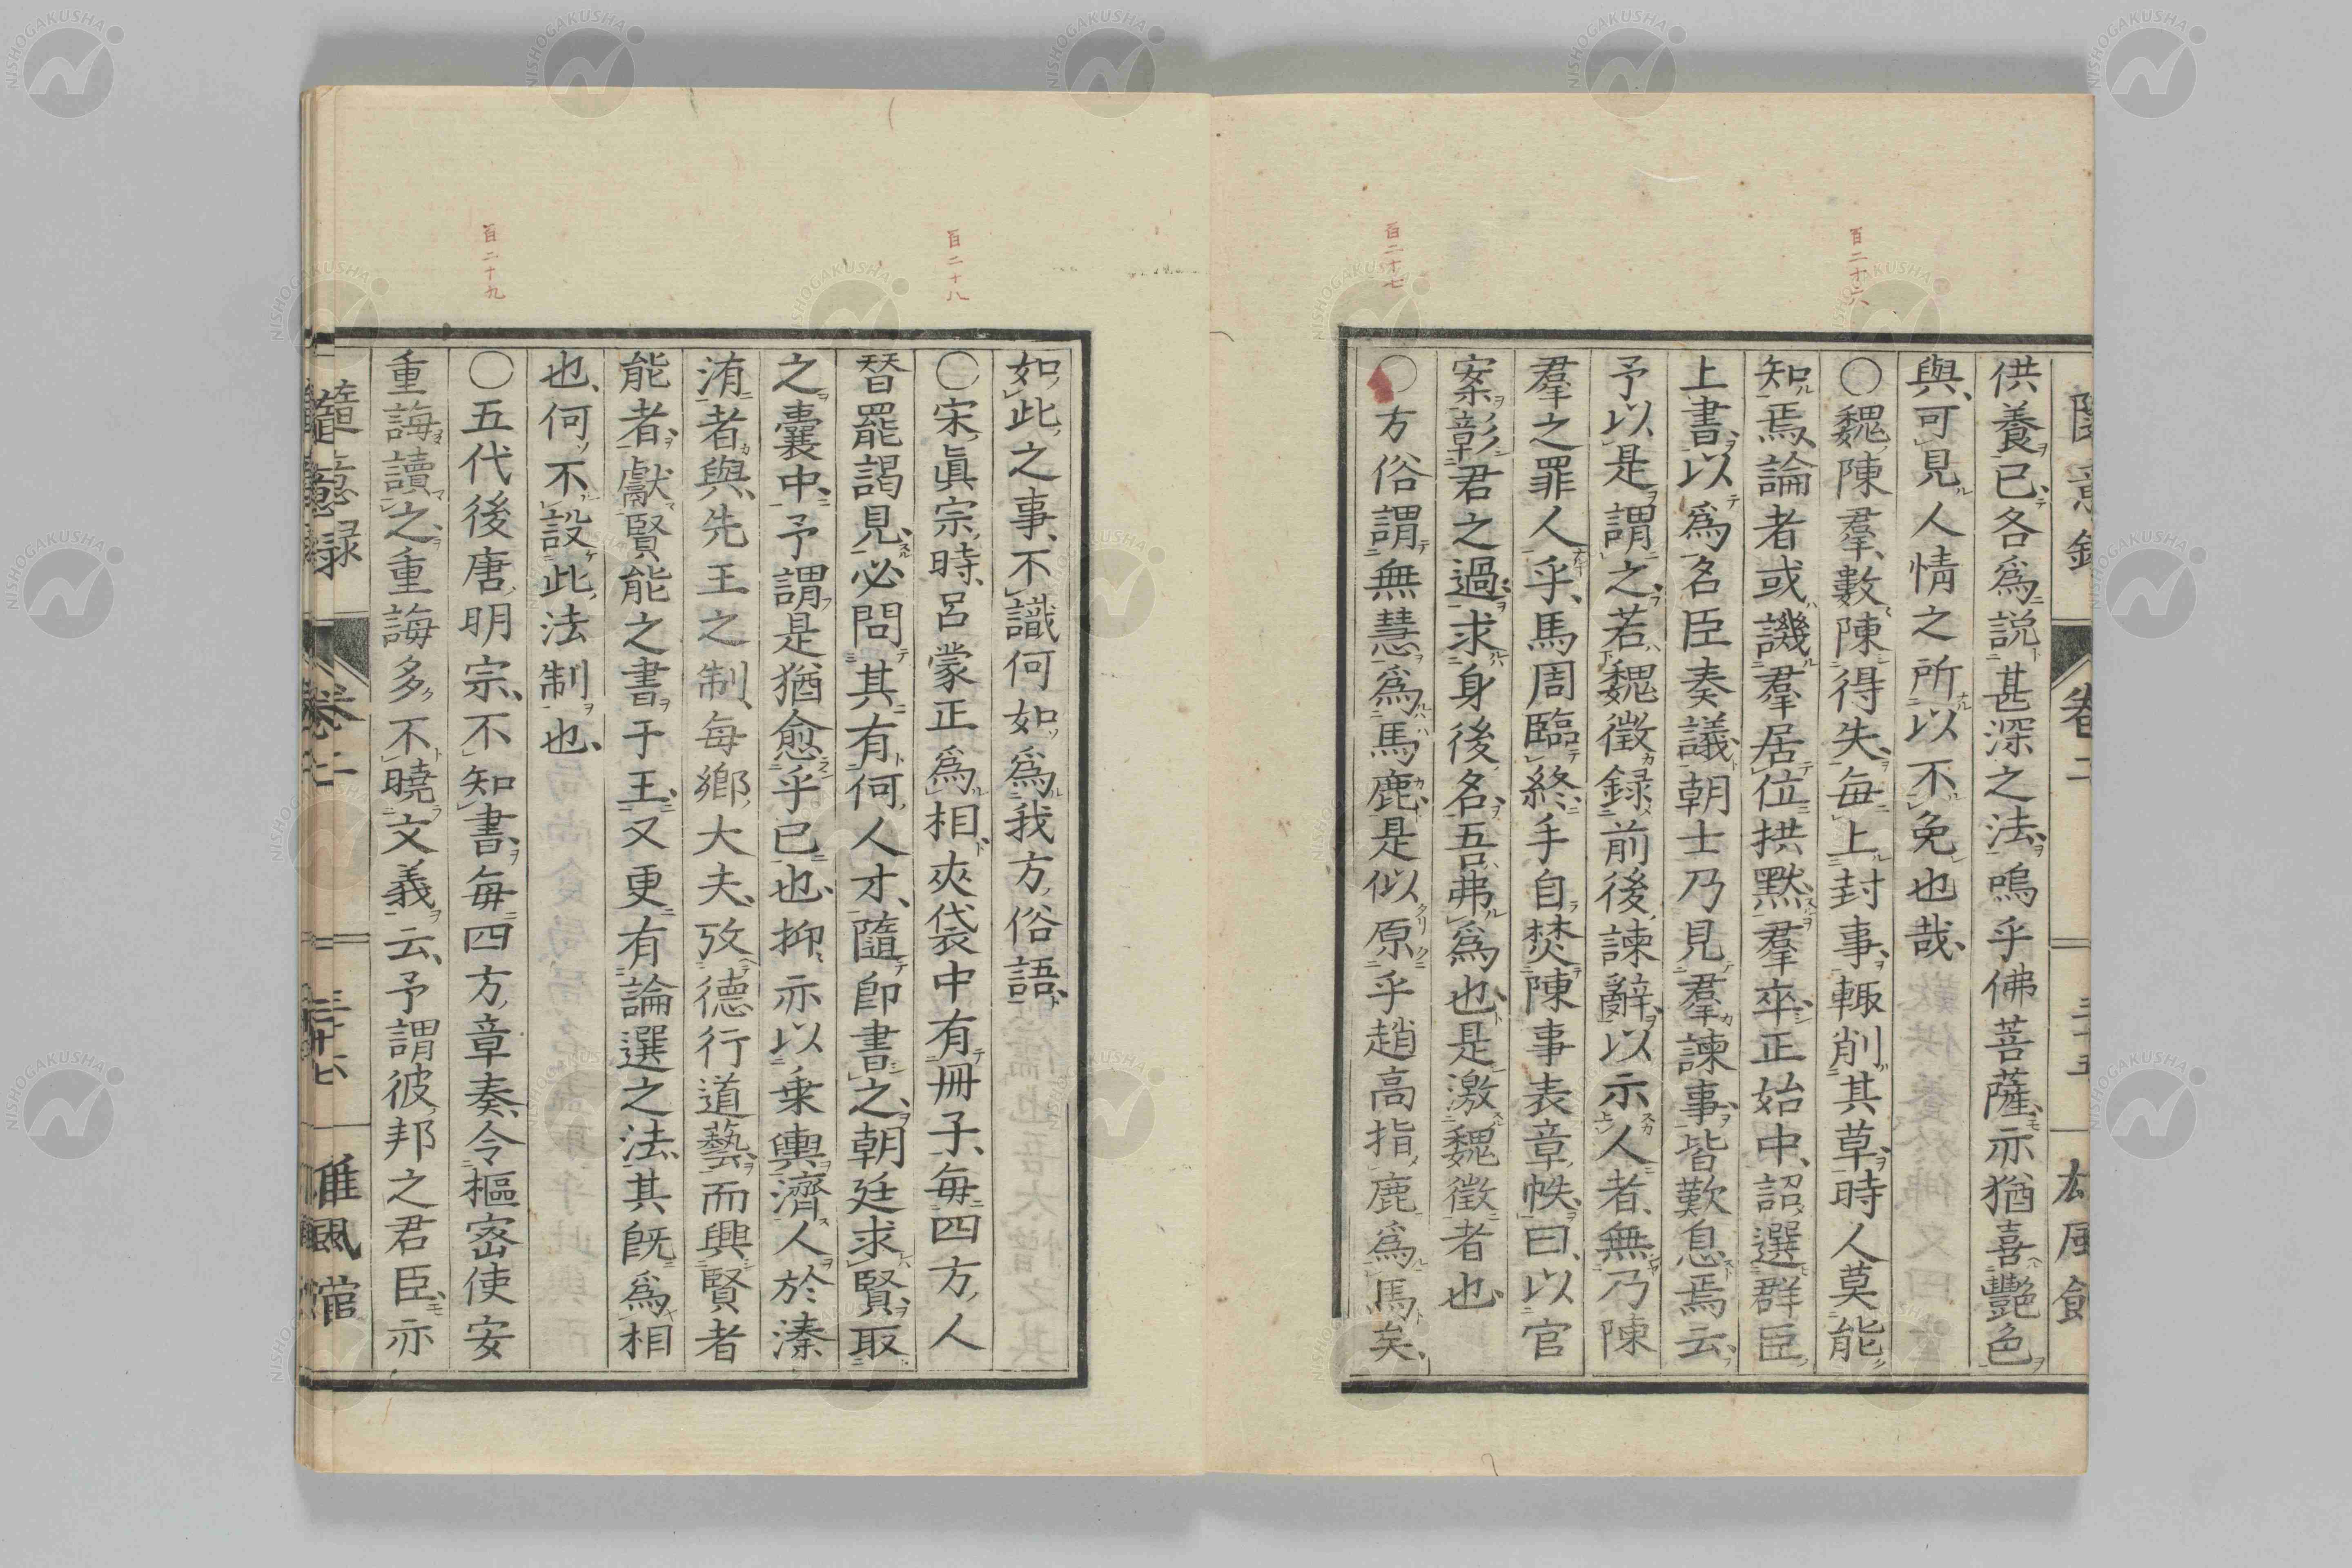 百二十六
百二十七
供養已各為説甚深之法嗚乎佛菩薩亦猶喜艷色
與可見人情之所以不免也哉
○魏陳羣數陳得失毎上封事輙削其草時人莫能
知焉論者或譏羣居位拱黙羣卒正始中詔選群臣
上書以爲名臣奏議朝士乃見羣諫事皆歎息焉云
予以是謂之若魏徴録前後諫辭以示人者無乃陳
羣之罪人乎馬周臨終手自焚陳事表章帙曰以官
案彰君之過求身後名吾弗爲也是激魏徴者也
○方俗謂無慧爲馬鹿是似原乎趙高指鹿爲馬矣
百二十八
百二十九
如此之事不識何如爲我方俗語
○宋眞宗時呂蒙正爲相夾袋中有冊子毎四方人
替罷謁見必問其有何人才隨即書之朝廷求賢取
之囊中予謂是猶愈乎已也抑亦以乗輿濟人於溱
洧者與先王之制毎鄉大夫攷德行道藝而興賢者
能者獻賢能之書于王又更有論選之法其既爲相
也何不設此法制也
○五代後唐明宗不知書毎四方章奏令樞密使安
重誨讀之重誨多不曉文義云予謂彼邦之君臣亦
隨意録
卷二
雄風館